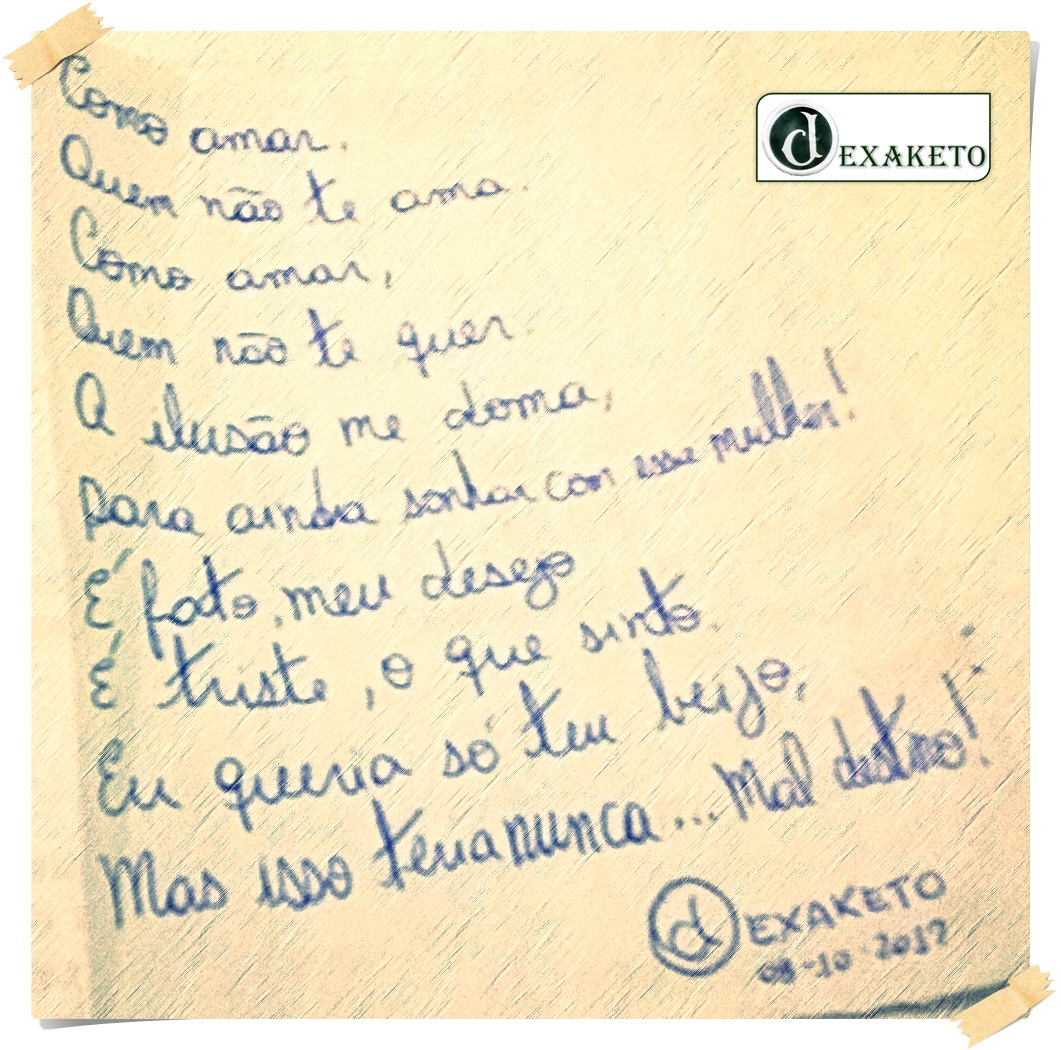 dEXAKETO
Como amar.
Quem não te ama.
Como amar,
Quem não te quer.
A ilusão me doma,
para ainda sonhar com esse mulher!
É fato, meu desejo
É triste, o que sinto.
Eu queria só teu beijo,
Mas isso teria nunca... Mal destino!
dEXAKETO
-10-2017